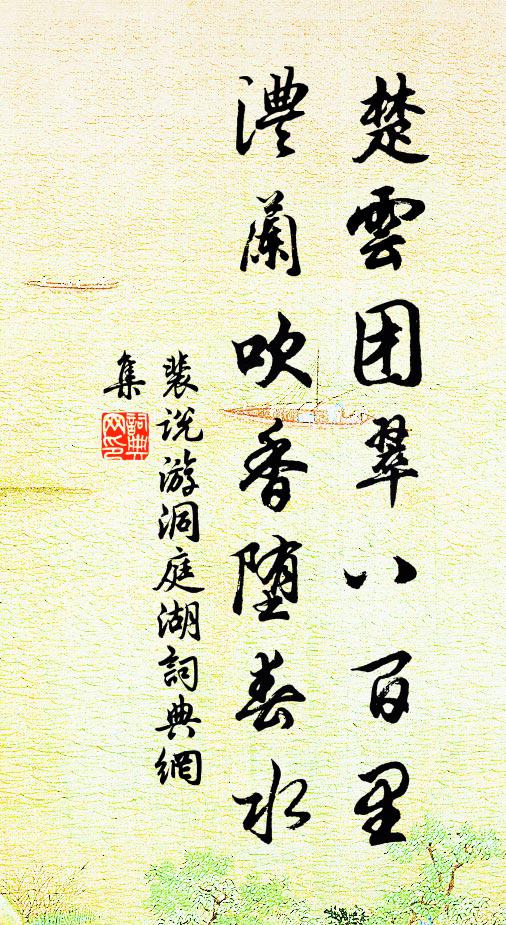 楚雲团翠八百里
澧蘭吹香堕春水
裴说游洞庭湖詞典網
集
詞典網印